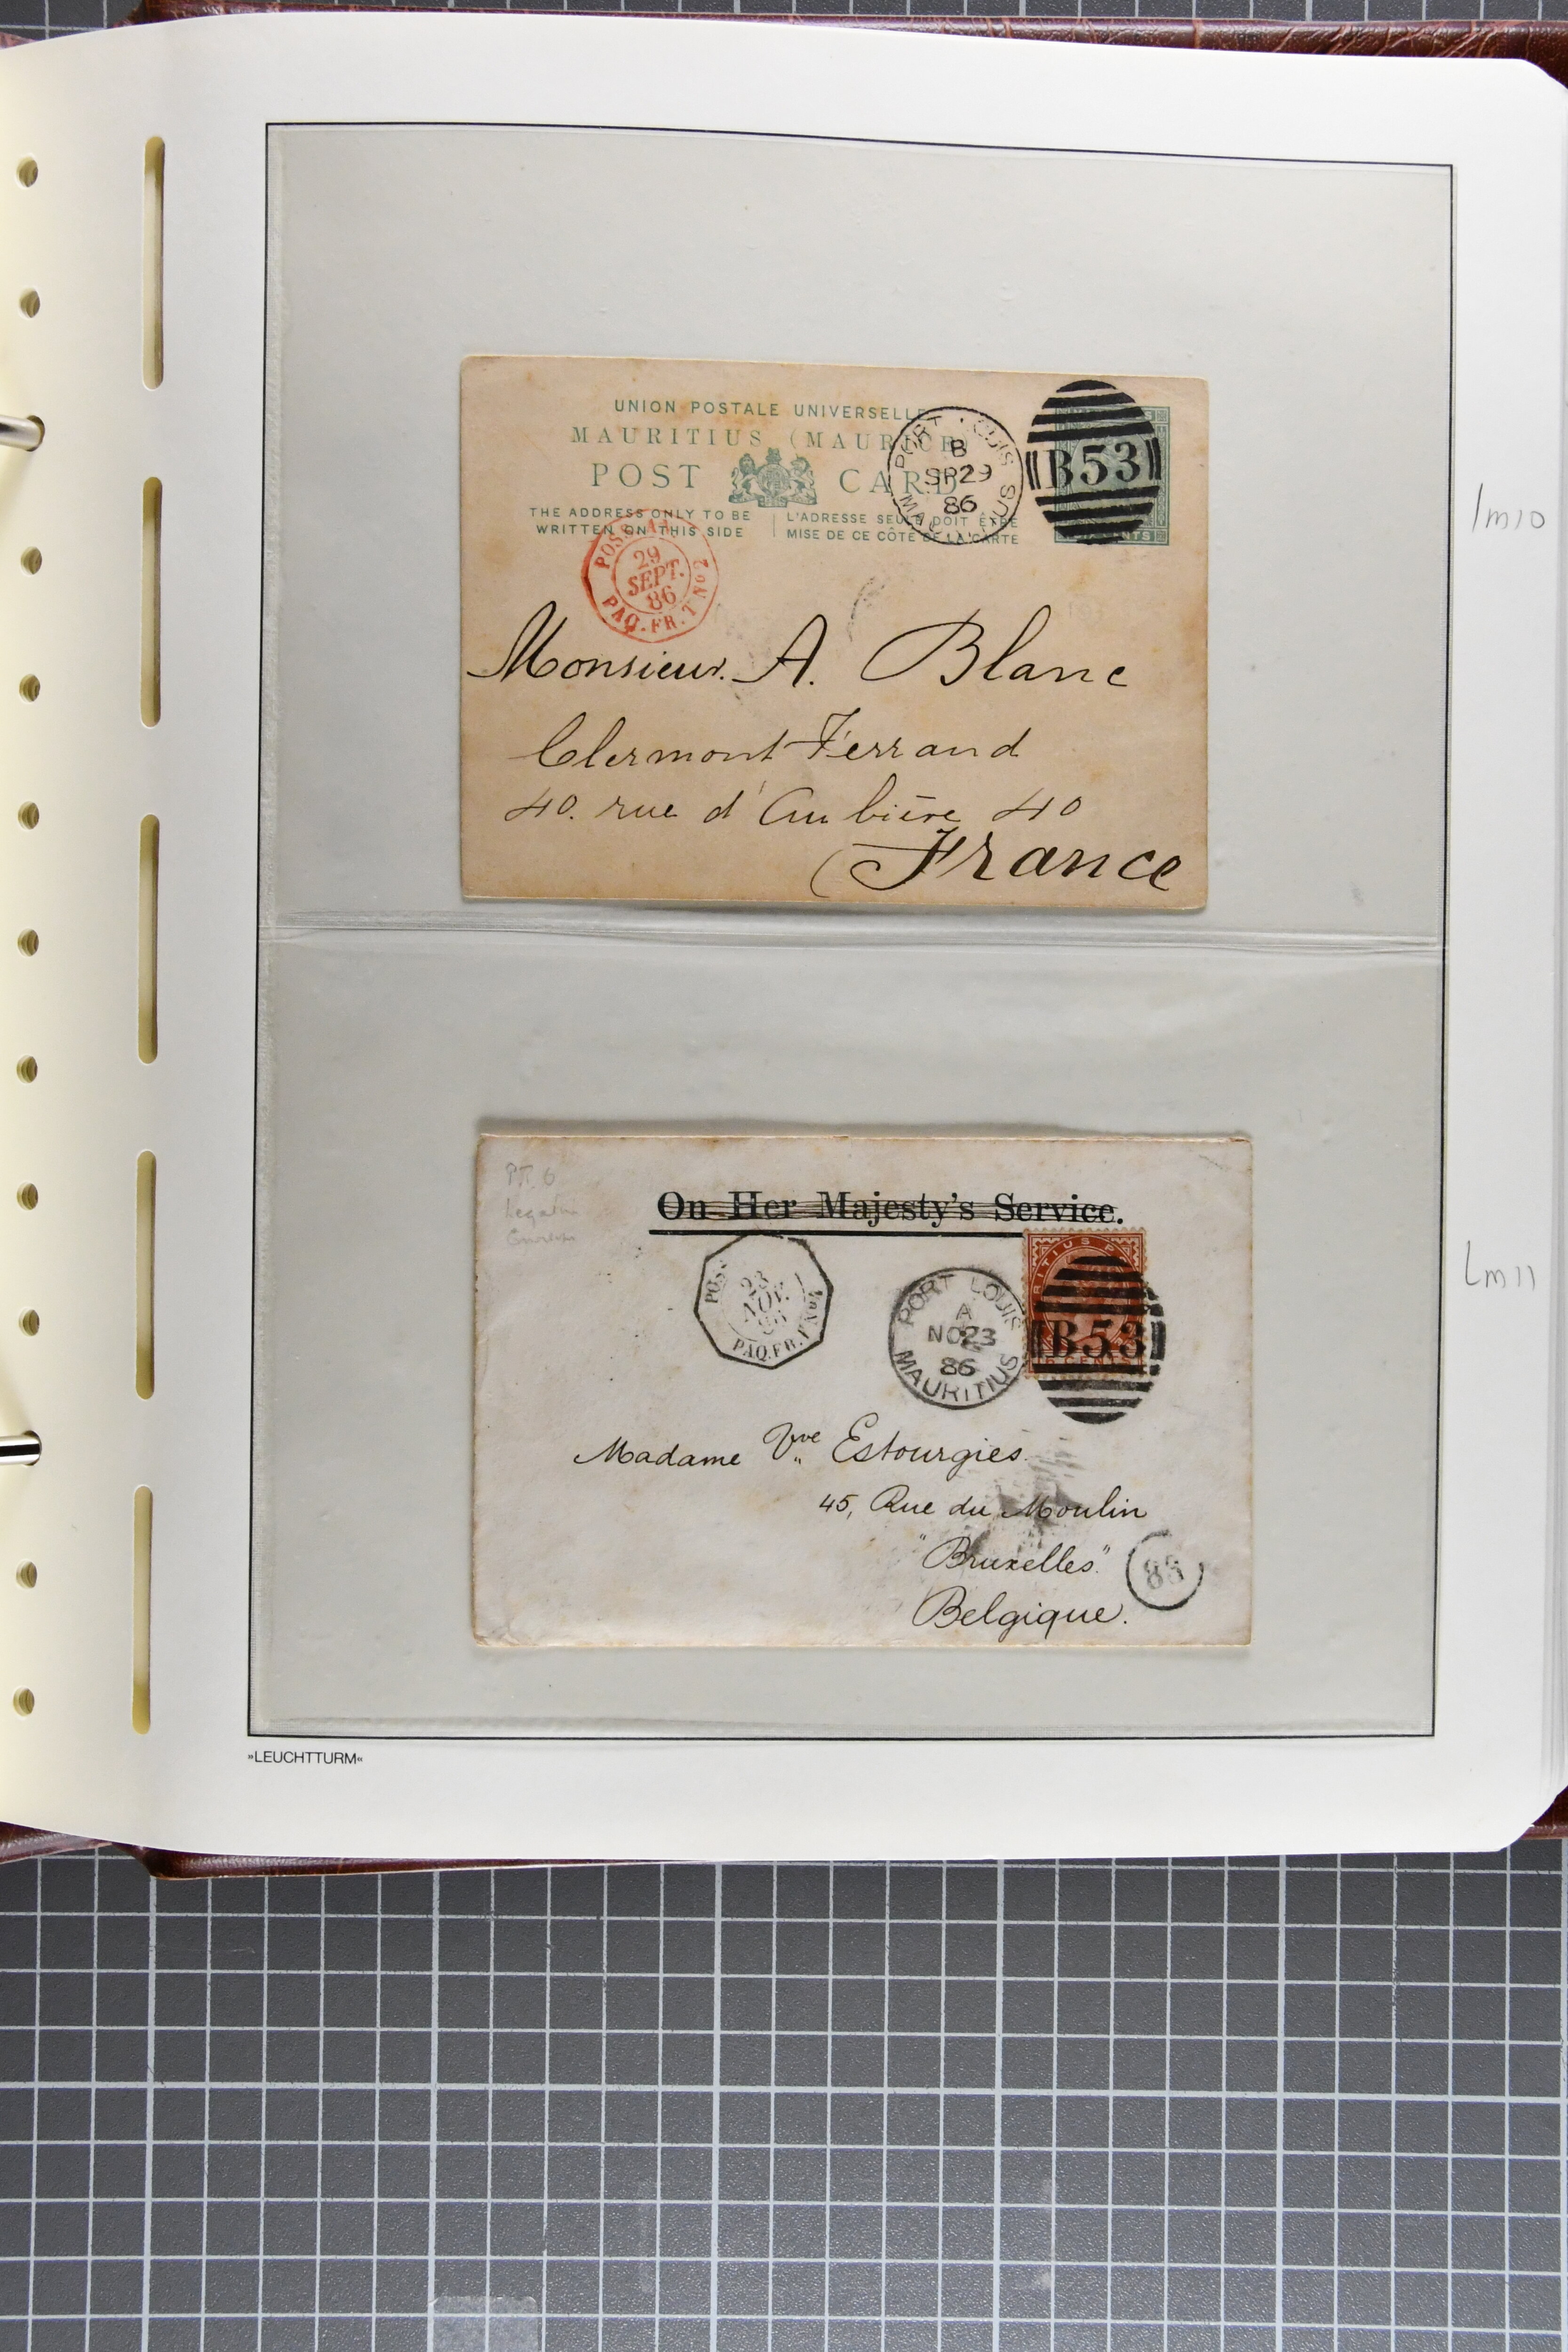 UNION POSTALE UNIVERSELLE
MAURITIUS (MAURICE)
POST CARD
THE ADDRESS ONLY TO BE
WRITTEN ON THIS SIDE
L'ADRESSE SEULE DOIT ÊTRE
MISE DE CE CÔTÉ DE LA CARTE
PORT LOUIS
B
SP 29
86
MAURITIUS
B53
29
SEPT.
86
PAQ.FR.T No 2
Monsieur. A. Blanc
Clermont-Ferrand
40. rue d'Aubière 40
France
lm10
PT. 6
On Her Majesty's Service.
POSS
23
NOV.
86
PAQ.FR.
PORT LOUIS
A
NO 23
86
MAURITIUS
B53
CENTS
Madame Vve Estourgies
45, Rue du Moulin
"Bruxelles"
Belgique.
85
Lm11
»LEUCHTTURM«